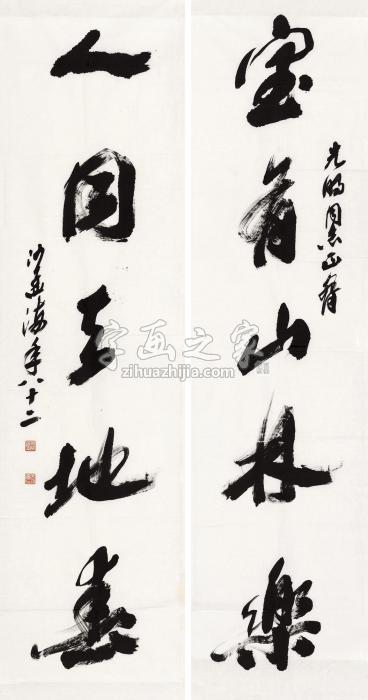 光明同志正
室有山林樂
人同天地春
沙孟海年八十二
字画之家
zihuazhijia.com